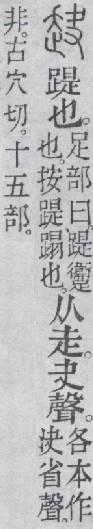 赽踶也。足部曰。踶躗也。按踶蹋也。从走。叏聲。各本作決省聲。
非。古穴切。十五部。